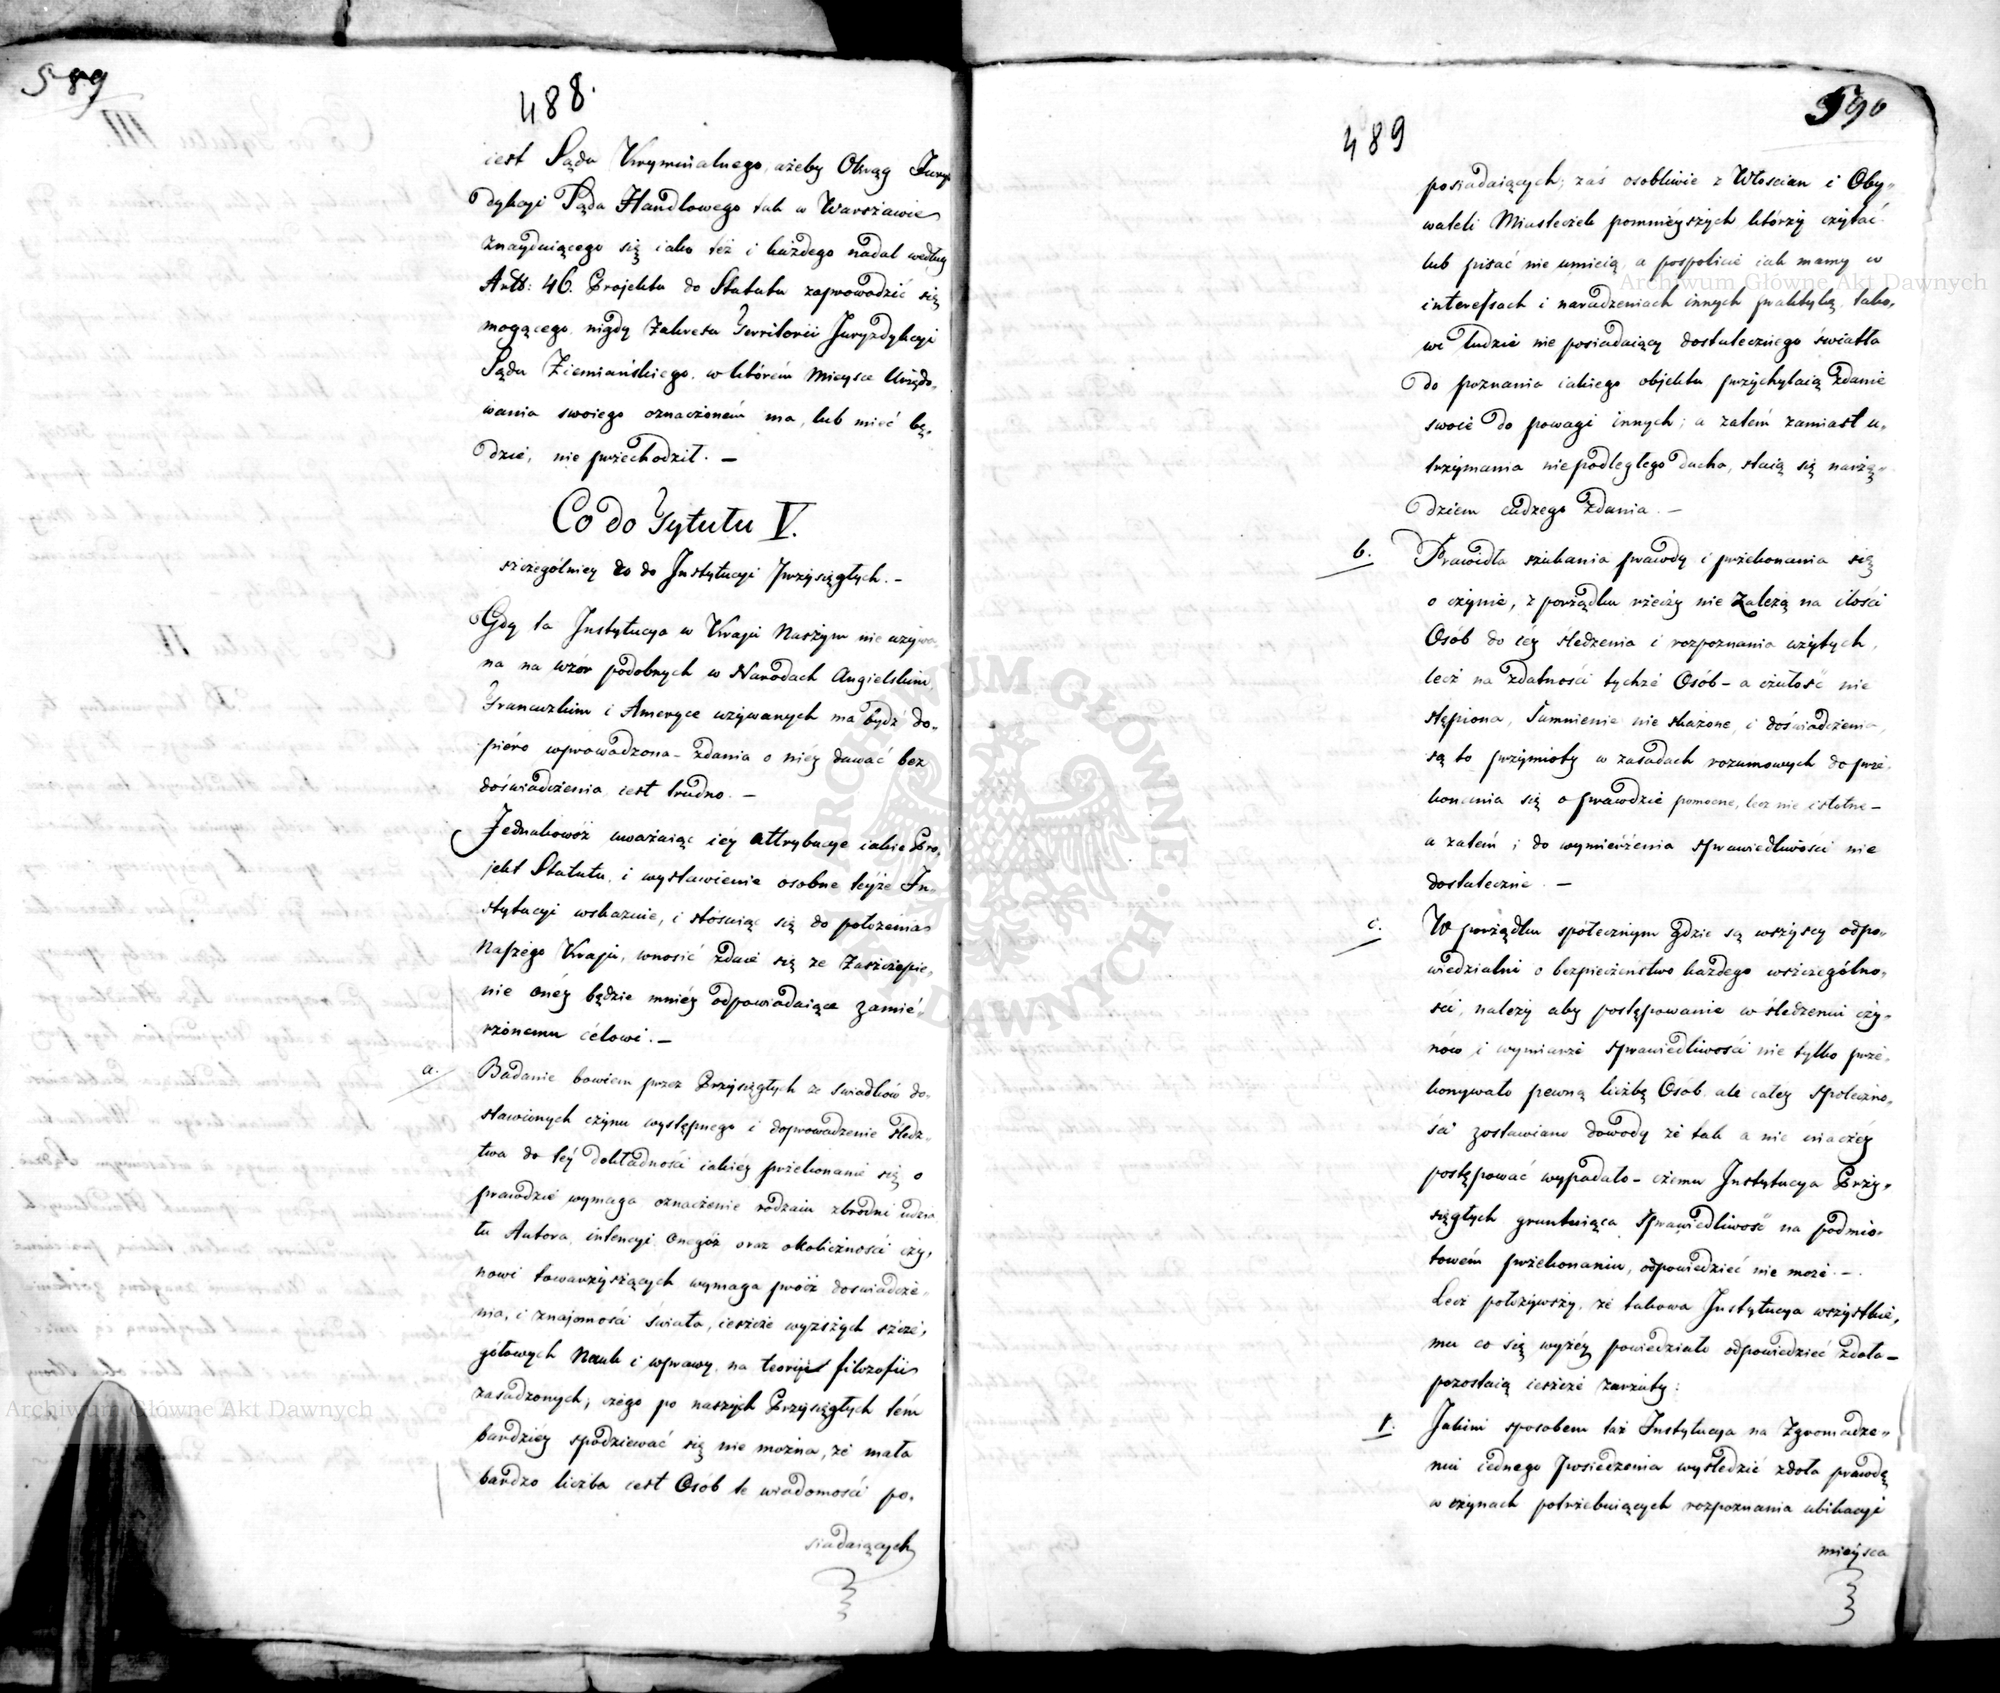 589
488.
iest Sądu Kryminalnego, ażeby Okrąg Jury-
dykcyi Sądu Handlowego tak w Warszawie
znayduiącego się iako też i każdego nadal według
Artł: 46. Projektu do Statutu zaprowadzić się
mogącego, nigdy Zakresu Territorii Juryzdykcyi
Sądu Ziemiańskiego, w którém Mieysce Urzędo-
wania swoiego oznaczoném ma, lub mieć bę-
dzie, nie przechodził. —
Co do Tytułu V.
szczególniey do Instytucyi Przysięgłych. —
Gdy ta Instytucya w Kraju Naszym nie używa-
na na wzór podobnych w Narodach Angielskim,
Francuzkim i Ameryce używanych ma bydź do-
piéro wprowadzona — zdania o niéy dawać bez
doświadczenia iest trudno. —
Jednakowóż uważaiąc iéy attrybucye iakie Pro-
jekt Statutu, i wystawienie osobne teyże In-
stytucyi wskazuie, i stósuiąc się do położenia
Naszego Kraju, wnosić zdaie się że Zaszczepie-
nie onéy będzie mniéy odpowiadaiące zamie-
rzonemu célowi. —
a. Badanie bowiem przez Przysięgłych ze swiadków do-
stawionych czynu występnego i doprowadzenie śledz-
twa do téy dokładności iakiéy przekonanie się o
prawdzie wymaga oznaczenie rodzaiu zbrodni udzia-
łu Autora, intencyi onegóż oraz okoliczności czy-
nowi towarzyszących wymaga prócz doswiadcze-
nia, i znajomości świata, ieszcze wyższych szcze-
gółowych Nauk i wprawy, na teoryi filozofii
zasadzonych; czego po naszych Przysięgłych tém
bardziéy spodziewać się nie można, że mała
bardzo liczba iest Osób te wiadomości po-
siadaiących
590
489
posiadaiących; zaś osobliwie z Włoscian i Oby-
wateli Miasteczek pomniéyszych którzy czytać
lub pisać nie umieią, a pospolicie iak mamy w
interessach i naradzeniach innych praktykę, tako-
wi ludzie nie posiadaiący dostatecznego światła
do poznania iakiego objektu przychylaią zdanie
swoie do powagi innych; a zatém zamiast u-
trzymania niepodległego ducha, staią się narzę-
dziem cudzego zdania. —
b. Prawidła szukania prawdy i przekonania się
o czynie, z porządku rzeczy nie zależą na ilości
Osób do iéy śledzenia i rozpoznania użytych,
lecz na zdatności tychże Osób — a czułość nie
stępiona, Sumnienie nie skażone, i doświadczenie,
są to przymioty w zasadach rozumowych do prze-
konania się o prawdzie pomocne, lecz nie istotne —
a zatém i do wymierzenia sprawiedliwości nie
dostateczne. —
c. W porządku społecznym gdzie są wszyscy odpo-
wiedzialni o bezpieczeństwo każdego wszczególno-
ści, należy aby postępowanie w śledzeniu czy-
nów i wymiarze sprawiedliwości nie tylko prze-
konywało pewną liczbę Osób, ale całey społeczno-
ści zostawiano dowody że tak a nie inaczéy
postępować wypadało — czemu Instytucya Przy-
sięgłych gruntuiąca sprawiedliwość na podmio-
towém przekonaniu, odpowiedzieć nie może. —
Lecz położywszy, że takowa Instytucya wszystkie-
mu co się wyżéy powiedziało odpowiedzieć zdoła —
pozostaią ieszcze zarzuty:
1. Jakim sposobem taż Instytucya na Zgromadze-
niu iednego Posiedzenia wyśledzić zdoła prawdę
w czynach potrzebuiących rozpoznania ubikacyi
mieysca
Archiwum Główne Akt Dawnych
Archiwum Główne Akt Dawnych
ARCHIWUM GŁÓWNE AKT DAWNYCH